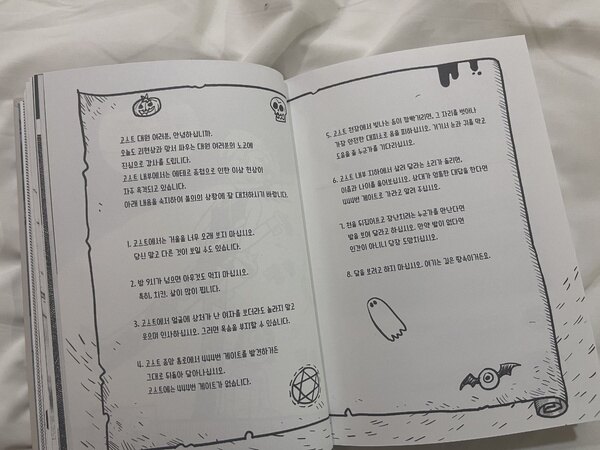 고스트 대원 여러분, 안녕하십니까.
오늘도 괴현상과 맞서 싸우는 대원 여러분의 노고에
진심으로 감사를 드립니다.
고스트 내부에서는 에테르 중첩으로 인한 이상 현상이
자주 목격되고 있습니다.
아래 내용을 숙지하여 돌의의 상황에 잘 대처하시기 바랍니다.
1. 고스트에서는 거울을 너무 오래 보지 마십시오.
당신 말고 다른 것이 보일 수도 있습니다.
2. 밤 9시가 넘으면 아무것도 먹지 마십시오.
특히, 치킨. 살이 많이 찝니다.
3. 고스트에서 얼굴에 상처가 난 여자를 보더라도 놀라지 말고
웃으며 인사하십시오. 그러면 목숨을 부지할 수 있습니다.
4. 고스트 중앙 통로에서 444번 게이트를 발견하거든
그대로 뒤돌아 달아나십시오.
고스트에는 444번 게이트가 없습니다.
5. 고스트 현장에서 빛나는 돌이 깜빡거리면, 그 자리를 벗어나
가장 안전한 대피소로 몸을 피하십시오. 거기서 눈과 귀를 막고
도움을 줄 누군가를 기다리십시오.
6. 고스트 내부 지하에서 살려 달라는 소리가 들리면,
이름과 나이를 물어보십시오. 상대가 엉뚱한 대답을 한다면
444번 게이트로 가라고 알려 주십시오.
7. 천을 뒤집어쓰고 장난치려는 누군가를 만난다면
발을 보여 달라고 하십시오. 만약 발이 없다면
인간이 아니니 당장 도망치십시오.
8. 달을 보려고 하지 마십시오. 여기는 깊은 땅속이거든요.